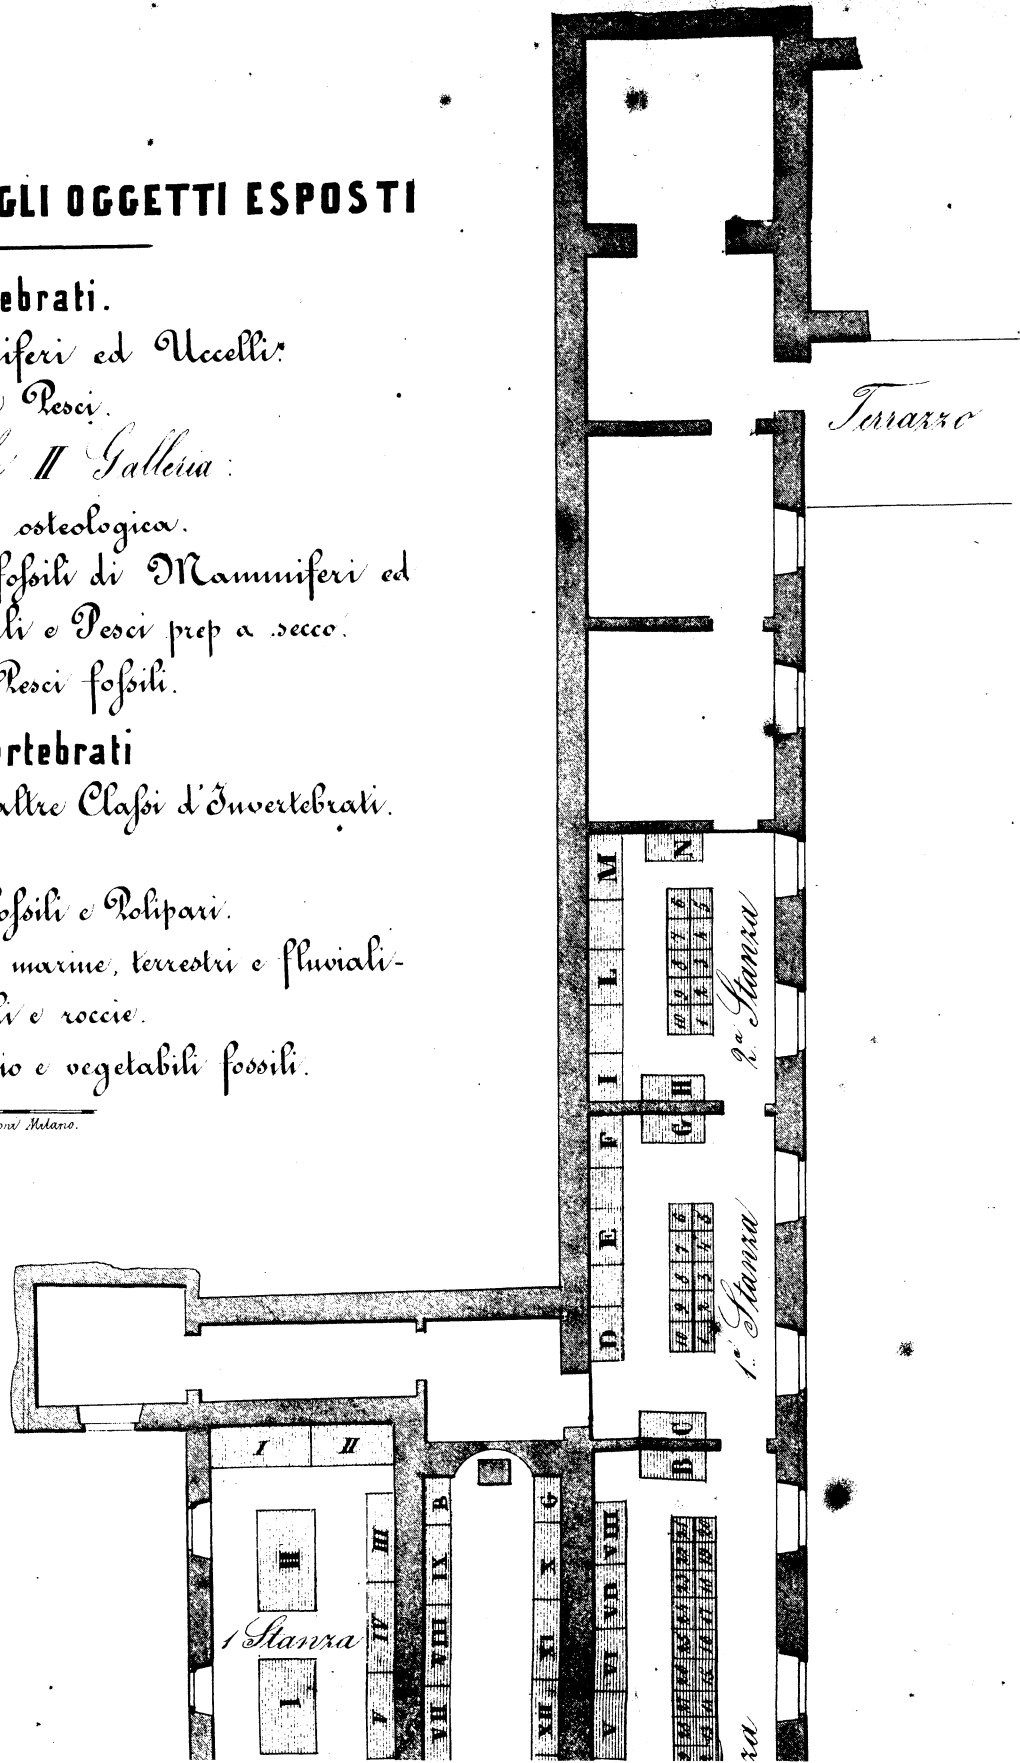 GLI OGGETTI ESPOSTI
ebrati.
iferi ed Uccelli.
Pesci.
II Galleria:
osteologica.
fossili di Mammiferi ed
li e Pesci prep a secco.
Pesci fossili.
rtebrati
altre Classi d'Invertebrati.
ossili e Polipari.
marine, terrestri e fluviali-
li e roccie.
io e vegetabili fossili.
oni Milano.
Terrazzo
M
N
L
I
H
2ª Stanza
10 9 8 7 6
1 2 3 4 5
F
G
E
D
1ª Stanza
10 9 8 7 6
1 2 3 4 5
C
B
VIII
VII
VI
V
I II
III
IV
V
III
1 Stanza
I
B
IX
VIII
VII
G
X
XI
XII
za